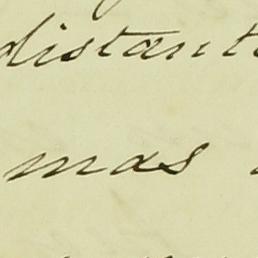 distant
mas